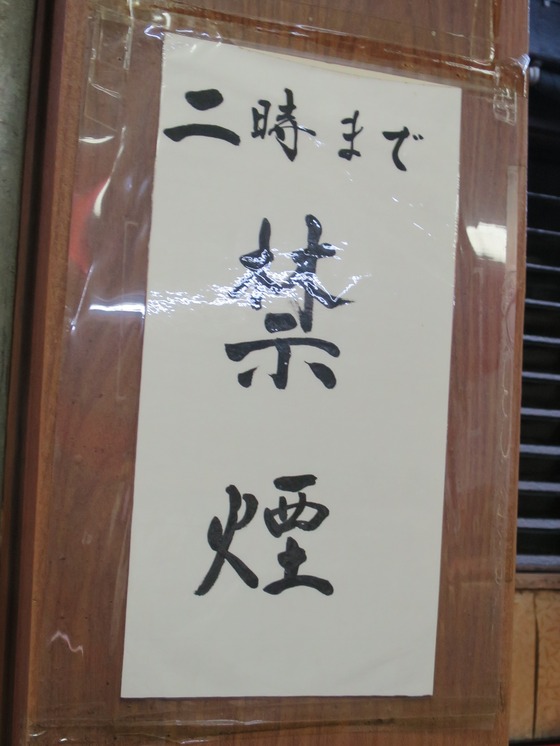 二時まで
禁
煙